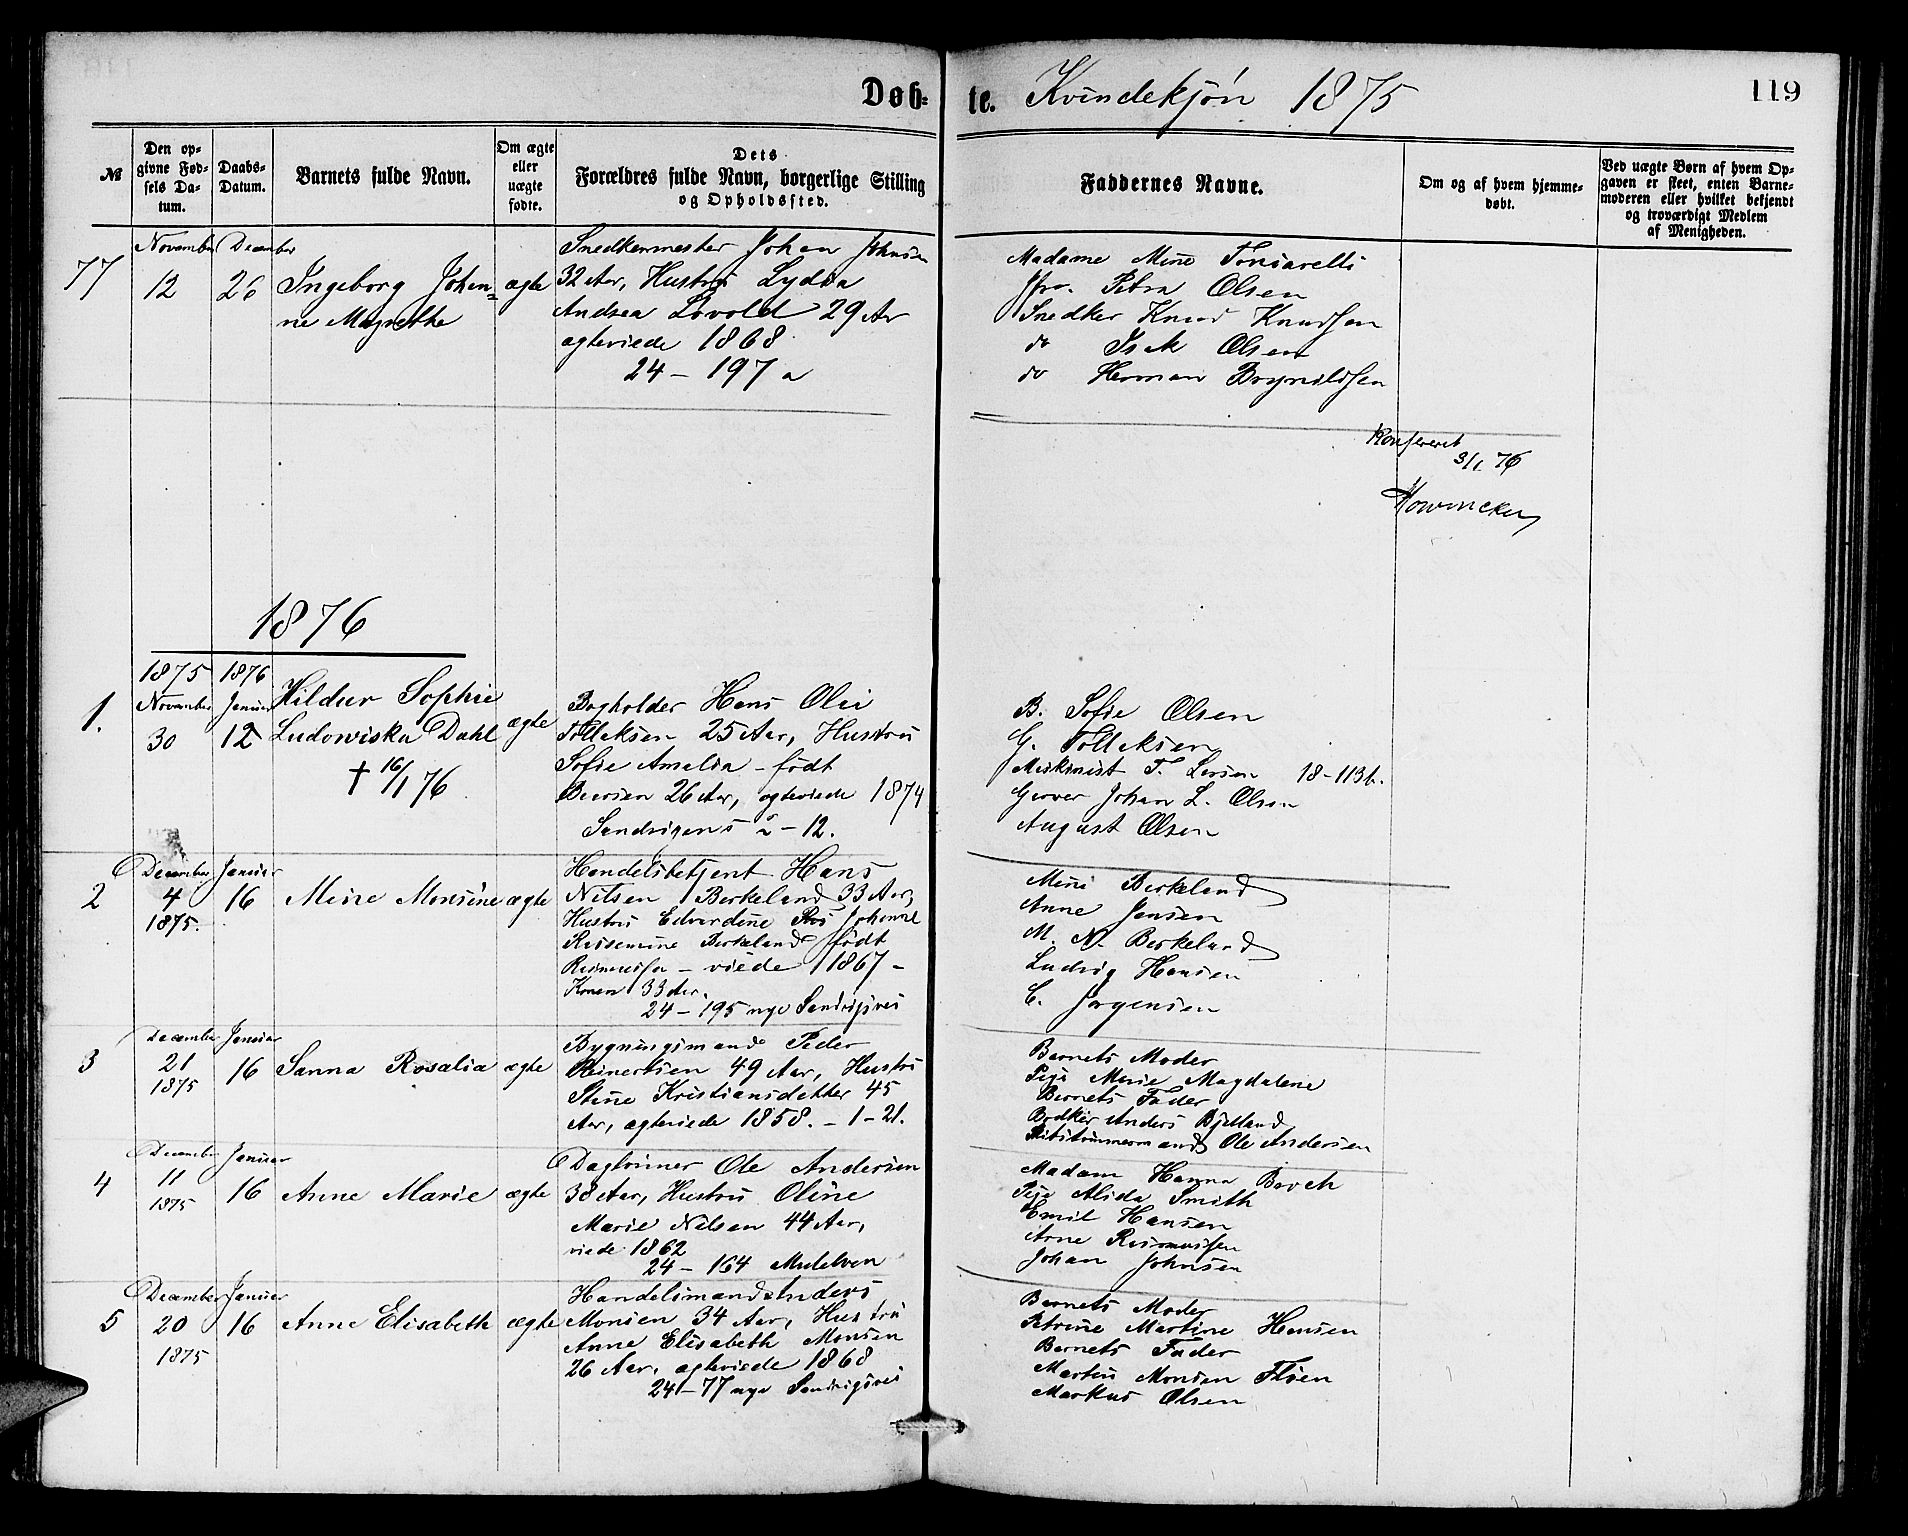 Døb-
te. Kvindekjøn 1875
119
№
Den op-
givne Fød-
sels Da-
tum.
Daabs-
Datum.
Barnets fulde Navn.
Om ægte
eller
uægte
fødte.
Dets
Forældres fulde Navn, borgerlige Stilling
og Opholdssted.
Faddernes Navne.
Om og af hvem hjemme-
døbt.
Ved uægte Børn af hvem Op-
gaven er skeet, enten Barne-
moderen eller hvilket bekjendt
og troværdigt Medlem
af Menigheden.
77
November
12
December
26
Ingeborg Johan-
ne Magrethe
ægte
Snedkermester Johan Johnsen
32 Aar, Hustru Lydia
Andrea Lovold 29 Ar
ægteviede 1868
24 - 197 a
Madame Mine
Petra Olsen
Snedker Knud Knudsen
do Isak Olsen
do Herman Brynildsen
Konfereret
3/1 76
1876
1.
1875
November
30
1876
Januar
12
Hildur Sophie
Ludowiska Dahl
† 16/1 76
ægte
Bogholder Hans Olai
Tolleksen 25 Aar, Hustru
Sofie Amalia - født
26 Aar, ægteviede 1874
2 - 12.
B. Sofie Olsen
G. Tolleksen
Maskinist T. Larsen 18-113b.
Garver Johan L. Olsen
August Olsen
2
December
4
1875.
Januar
16
Mine Monsine
ægte
Handelsbetjent Hans
Nilsen Berkeland 33 Aar,
Hustru Edvardine Johanne
Berkeland født
Rasmussen - viede 1867 -
Konen 33 Aar.
24 - 195 nye Sandvigsvei
Mine Berkeland
Anne Jensen
M. N. Berkeland
Ludvig Hansen
C. Jørgensen
3
December
21
1875
Januar
16
Sanna Rosalia
ægte
Bygningsmand Peder
Reinertsen 49 Aar, Hustru
Stine Kristiansdatter 45
Aar, ægteviede 1858. - 1 - 21.
Barnets Moder
Pige Marie Magdalene
Barnets Fader
Bødker Anders Bjelland
Ole Andersen
4
December
11
1875
Januar
16
Anne Marie
ægte
Daglønner Ole Andersen
38 Aar, Hustru Oline
Marie Nilsen 44 Aar,
viede 1862
24 - 164 Mulelven
Madam Hanna
Pige Alida Smith
Emil Hansen
Arne Rasmussen
Johan Johnsen
5
December
20
1875
Januar
16
Anne Elisabeth
ægte
Handelsmand Anders
Monsen 34 Aar, Hustru
Anne Elisabeth Monsen
26 Aar, ægteviede 1868
24 - 77 nye Sandvigsvei
Barnets Moder
Petrine Martine Hansen
Barnets Fader
Martin Monsen Fløen
Markus Olsen